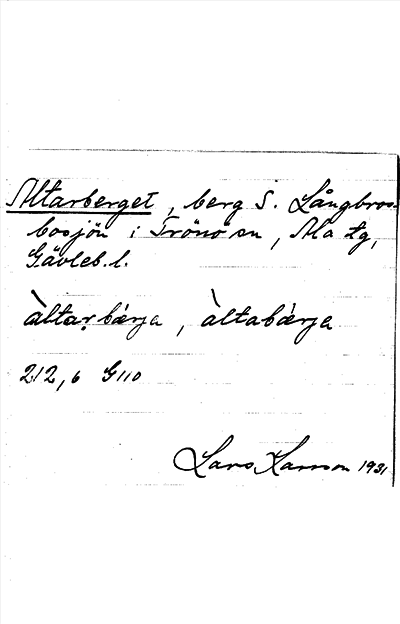 Altarberget, berg S. Långbros-
bosjön i Trönö sn, Ala tg,
Gävleb. l.
àltaṛbárja, àltabárja
212, 6 G110
Lars Larsson 1931